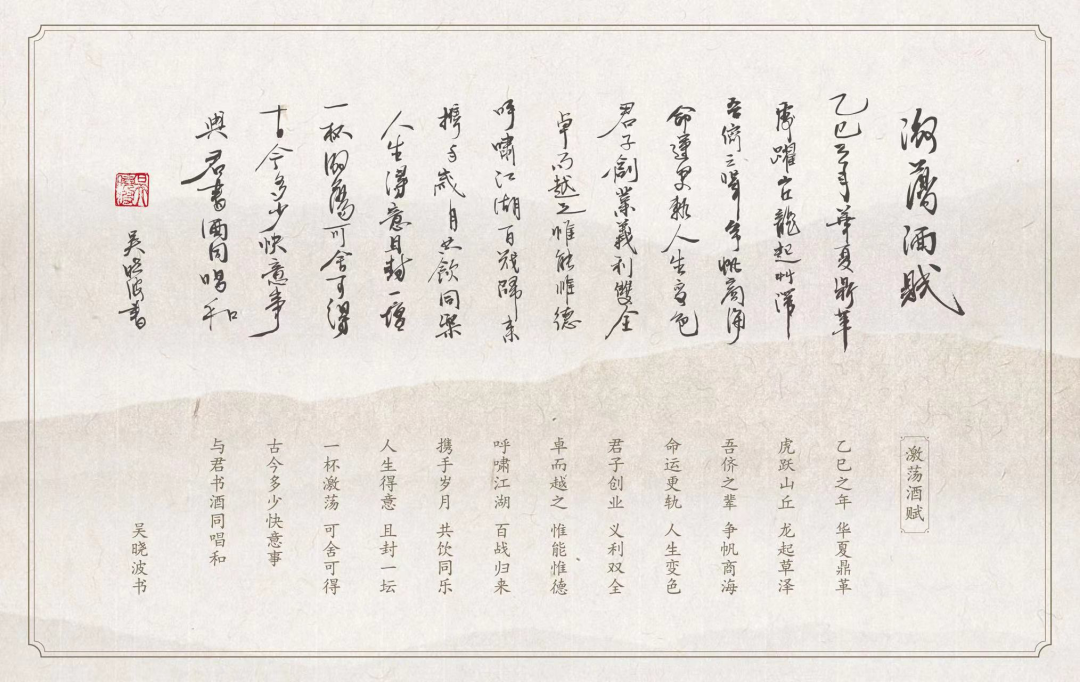 激蕩酒賦
乙巳之年華夏鼎革
虎躍山丘龍起草澤
吾儕之輩爭帆商海
命運更軌人生变色
君子創業義利雙全
卓而越之惟能惟德
呼嘯江湖百戰歸来
携手歲月共飲同樂
人生得意且封一壇
一杯激蕩可舍可得
古今多少快意事
與君書酒同唱和
吴晓波書
激荡酒赋
乙巳之年 华夏鼎革
虎跃山丘 龙起草泽
吾侪之辈 争帆商海
命运更轨 人生变色
君子创业 义利双全
卓而越之 惟能惟德
呼啸江湖 百战归来
携手岁月 共饮同乐
人生得意 且封一坛
一杯激荡 可舍可得
古今多少快意事
与君书酒同唱和
吴晓波书